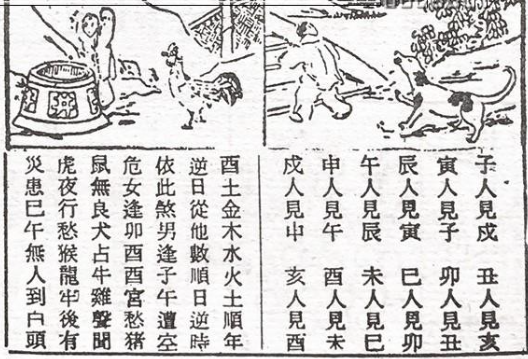 子人見戌 丑人見亥
寅人見子 卯人見丑
辰人見寅 巳人見卯
午人見辰 未人見巳
申人見午 酉人見未
戌人見申 亥人見酉
酉土金木水火土順年
逆日從他數順日逆時
依此煞男逢子午遭空
危女逢卯酉酉宮愁猪
鼠無良犬占牛雞聲聞
虎夜行愁猴龍牢後有
災患巳午無人到白頭